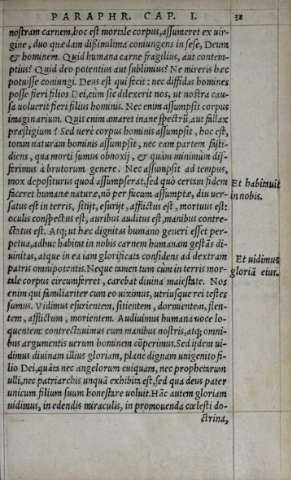 PARAPHR. CAP. I. 38
nostram carnem, hoc est mortale corpus, assumeret ex uir-
gine, duo quædam dißimilima coniungens in sese, Deum
& hominem. Quid humana carne fragilius, aut contem-
ptius? Quid deo potentius aut sublimius? Ne mireris hæc
potuisse coniungi. Deus est qui fecit: nec diffidas homines
posse fieri filios Dei, cùm sic dilexerit nos, ut nostra cau-
sa uoluerit fieri filius hominis. Nec enim assumpsit corpus
imaginarium. Quis enim amaret inane spectrũ, aut fallax
præstigium? Sed uerè corpus hominis assumpsit, hoc est,
totam naturam hominis assumpsit, nec eam partem fasti-
diens, qua morti sumus obnoxij, & qua minimum dif-
ferimus à brutorum genere. Nec assumpsit ad tempus,
mox depositurus quod assumpserat, sed quò certam fidem
faceret humanæ naturæ, nõ per fucam assumptæ, diu uer-
satus est in terris, sitijt, esurijt, afflictus est, mortuus est:
oculis conspectus est, auribus auditus est, manibus contre-
ctatus est. Atq; ut hæc dignitas humano generi esset per-
petua, adhuc habitat in nobis carnem humanam gestãs di-
uinitas, atque in ea iam glorificata considens ad dextram
patris omnipotentis. Neque tamen tum cùm in terris mor-
tale corpus circunferret, carebat diuina maiestate. Nos
enim qui familiariter cum eo uiximus, utriusque rei testes
sumus. Vidimus esurientem, sitientem, dormientem, flen-
tem, afflictum, morientem. Audiuimus humana uoce lo-
quentem: contrectauimus eum manibus nostris, atq; omni-
bus argumentis uerum hominem cõperimus. Sed ijdem ui-
dimus diuinam illius gloriam, planè dignam unigenito fi-
lio Dei, quãta nec angelorum cuiquam, nec prophetarum
ulli, nec patriarchis unquã exhibita est, sed qua deus pater
unicum filium suum honestare uoluit. Hãc autem gloriam
uidimus, in edendis miraculis, in promouenda cœlesti do-
ctrina,
Et habitauit
in nobis.
Et uidimus
gloriã eius.